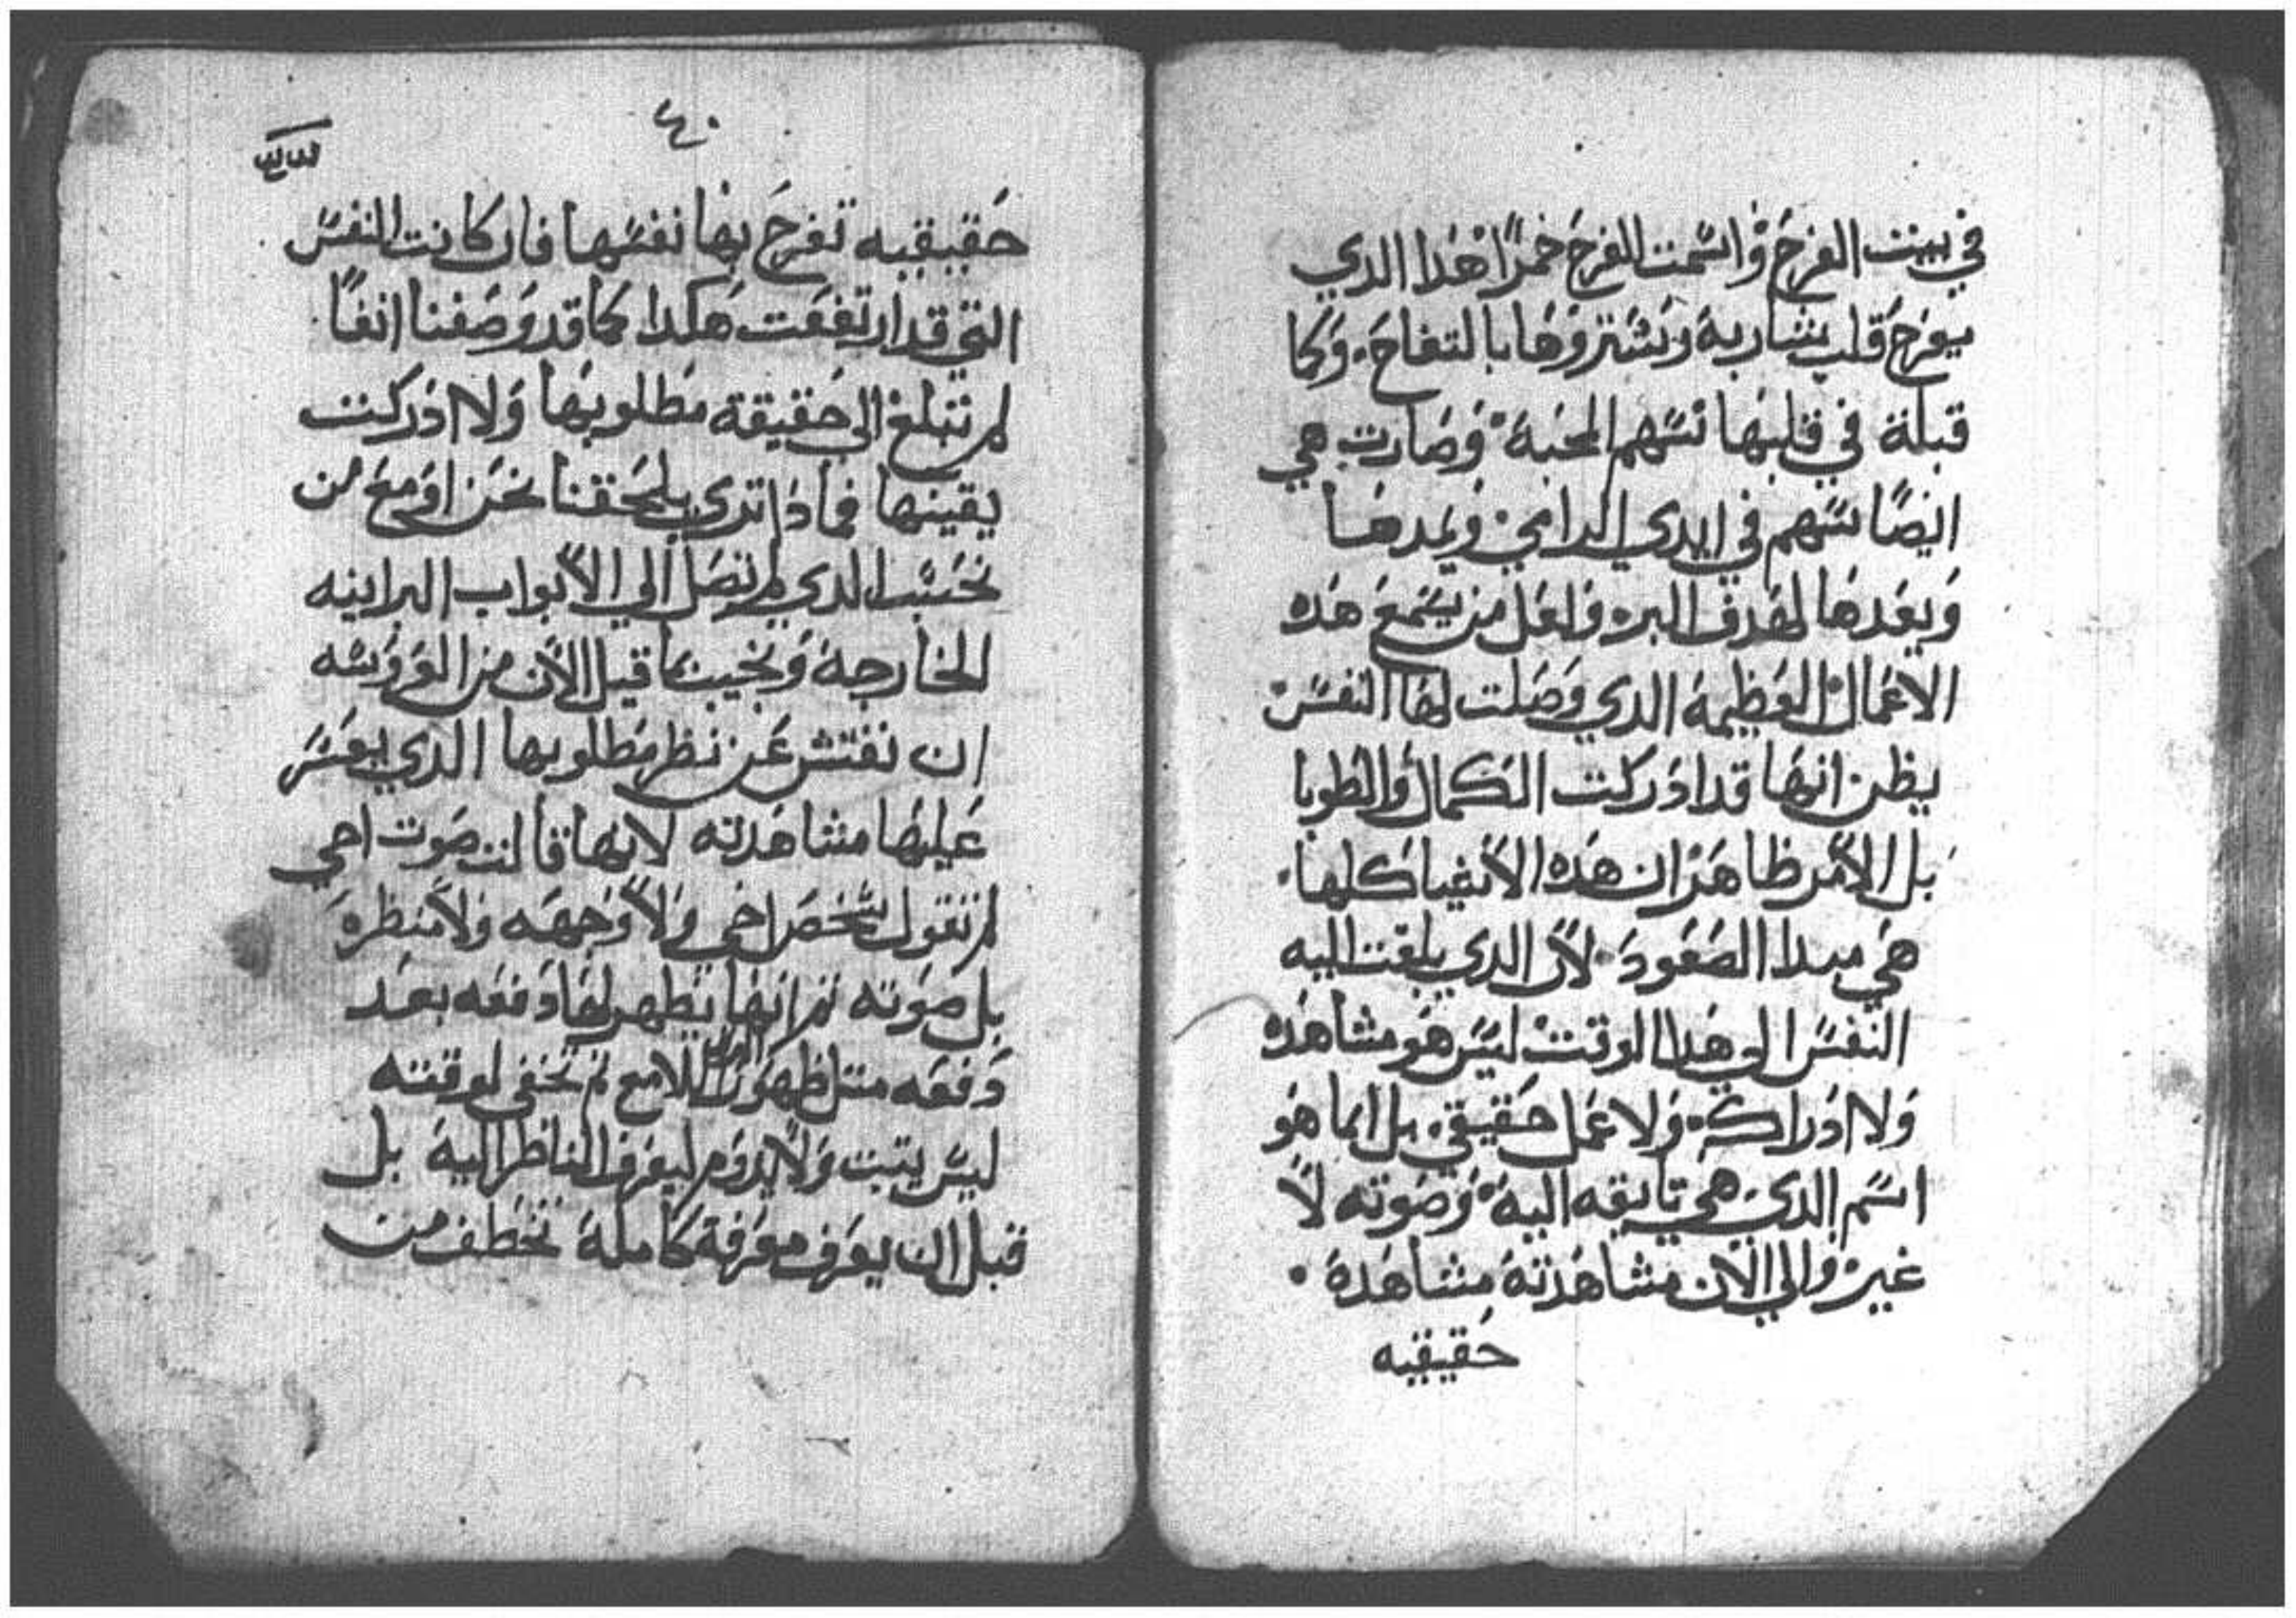 في بيت الفرح واسمت الفرح خمرًا هدا الدي
يفرح قلب شاربة وتشتروها بالتفاح. وكما
قبلة في قلبها سهم المحبة وصارت هي
ايضًا سهم في ايدي الرامي ويمدها
ويعدها لهدف البر. ولعل من يسمع هده
الاعمال العظيمة الدي وصلت لها النفس
يظن انها قد ادركت الكمال والطوبا
بل الامر ظاهر ان هده الاشيا كلها.
هي مبدا الصعود. لان الدي بلغت اليه
النفس الي هدا الوقت ليس هو مشاهده
ولا ادراكة. ولا عمل حقيقي. بل انما هو
اسم الدي هي تايقه الية وصوته لا
غير والي الان مشاهدتة مشاهدة.
حقيقيه
٤٠
حقيقيه تفرح بها نفسها فان كانت النفس
التي قد ارتفعت هكدا كما قد وصفنا انفًا
لم تبلغ الي حقيقة مطلوبها ولا ادركت
يقينها فمادا تري يلحقنا نحن اوجع من
نحسب الدي لم نصل الي الابواب البرانيه
الخارجة ونجيب ما قيل الان من العروسه
ان نفتش عن نظر مطلوبها الدي يعسر
عليها مشاهدته لانها قالت صوت اخي
لم تقول شخص اخي ولا وجهه ولا منظره
بل صوته ثم انها يظهر لها دفعه بعد
دفعه متل ظهور البرق اللامع ثم تخفي لوقته
ليس يتبت ولا يدوم ليعرف الناظر الية بل
قبل ان يعرف معرفة كاملة تخطف من